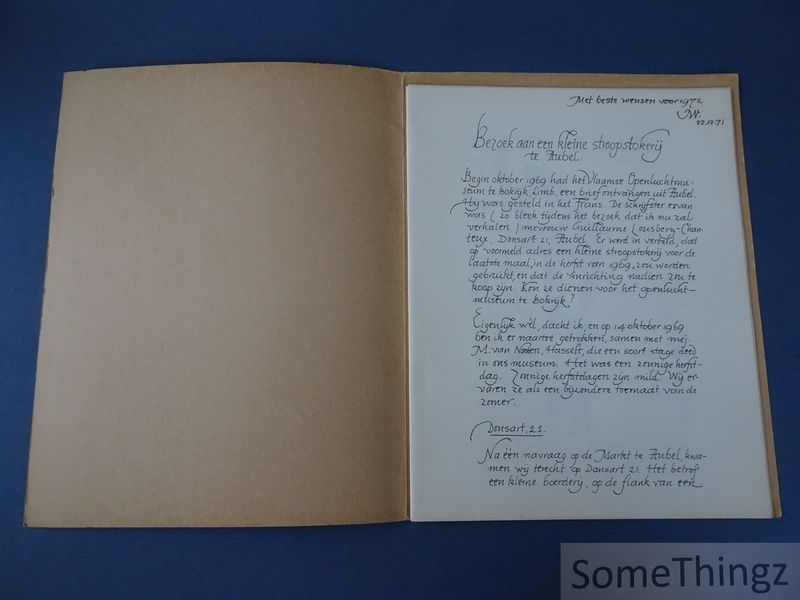 Met beste wensen voor 1972
JW.
22.12.71
Bezoek aan een kleine stroopstokerij
te Aubel.
Begin oktober 1969 had het Vlaamse Openluchtmu-
seum te Bokrijk Limb, een brief ontvangen uit Aubel.
Hij was gesteld in het Frans. De schrijfster ervan
was ( zo bleek tijdens het bezoek dat ik nu zal
verhalen ) mevrouw Guillaume Lousberg-Chan-
teux, Donsart 21, Aubel. Er werd in verteld, dat
op voormeld adres een kleine stroopstokerij voor de
laatste maal, in de herfst van 1969, zou worden
gebruikt, en dat de inrichting nadien zou te
koop zijn. Kon ze dienen voor het openlucht-
museum te Bokrijk?
Eigenlijk wèl, dacht ik, en op 14 oktober 1969
ben ik er naartoe getrokken, samen met mej.
M. van Nooten, Hasselt, die een soort stage deed
in ons museum. Het was een zonnige herfst-
dag. Zonnige herfstdagen zijn mild. Wij er-
varen ze als een bijzondere toemaat van de
zomer.
Donsart, 21.
Na één navraag op de Markt te Aubel, kwa-
men wij terecht op Donsart 21. Het betrof
een kleine boerderij, op de flank van een
SomeThingz